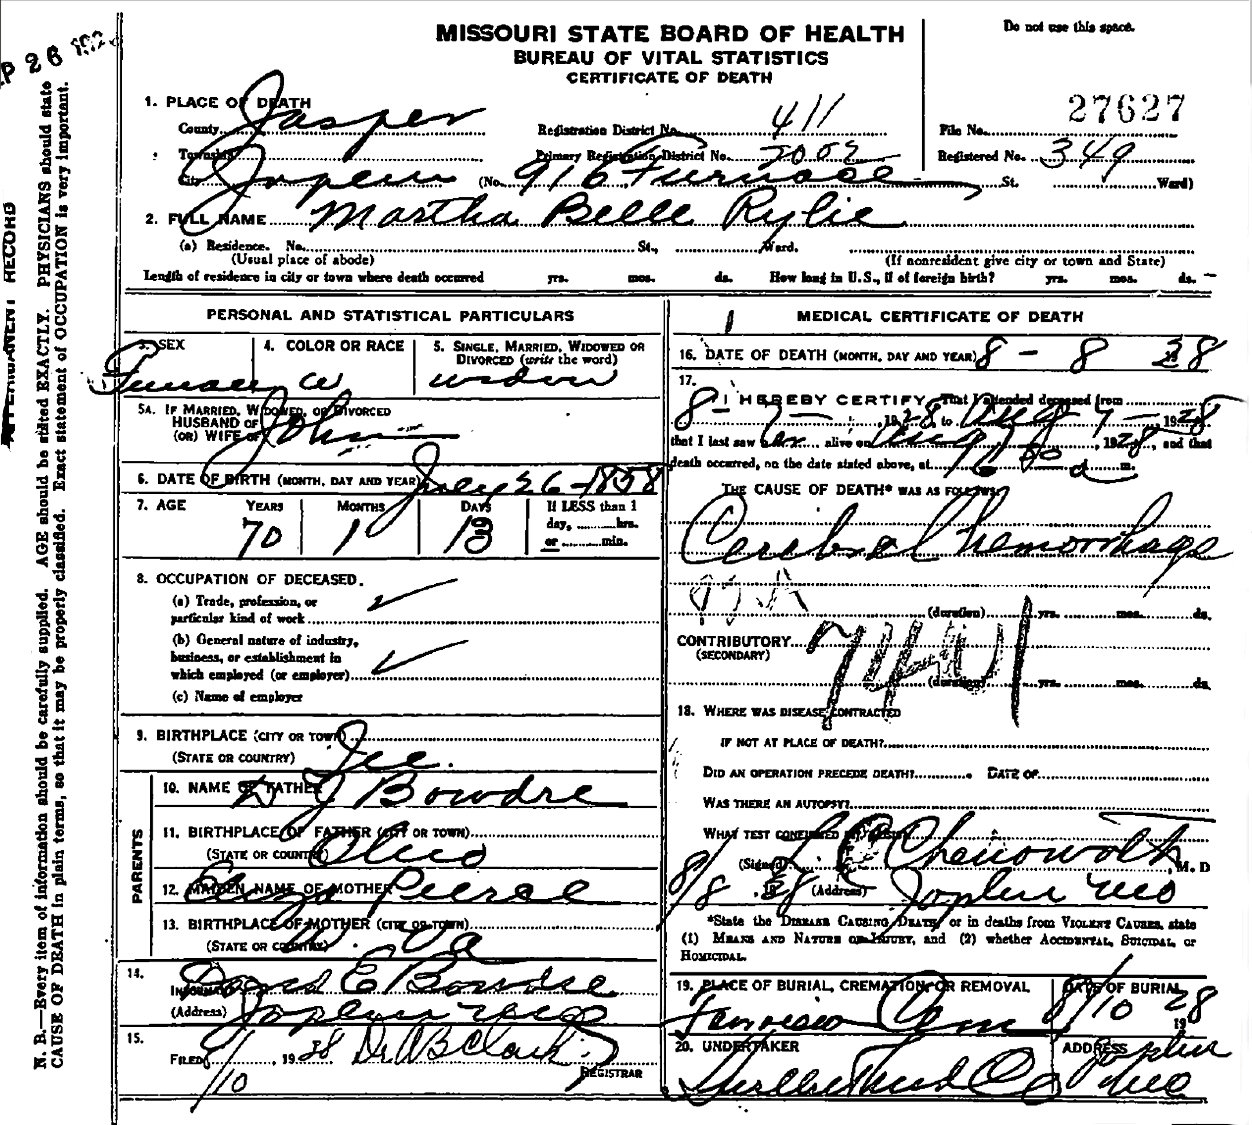 MISSOURI STATE BOARD OF HEALTH
BUREAU OF VITAL STATISTICS
CERTIFICATE OF DEATH
Do not use this space.
27627
1. PLACE OF DEATH
County Jasper
Registration District No. 411
File No.
Township
Primary Registration District No. 2002
Registered No. 349
City Joplin (No. 916 Furnace St. Ward)
2. FULL NAME Martha Belle Rylie
(a) Residence. No. St., Ward.
(Usual place of abode) (If nonresident give city or town and State)
Length of residence in city or town where death occurred yrs. mos. ds. How long in U.S., if of foreign birth? yrs. mos. ds.
PERSONAL AND STATISTICAL PARTICULARS
3. SEX
Female
4. COLOR OR RACE
W
5. SINGLE, MARRIED, WIDOWED OR DIVORCED (write the word)
widow
5A. IF MARRIED, WIDOWED, OR DIVORCED
HUSBAND OF
(OR) WIFE OF John
6. DATE OF BIRTH (MONTH, DAY AND YEAR) 26-1858
7. AGE YEARS MONTHS DAYS If LESS than 1
day, hrs.
or min.
70 1 13
8. OCCUPATION OF DECEASED.
(a) Trade, profession, or
particular kind of work
(b) General nature of industry,
business, or establishment in
which employed (or employer)
(c) Name of employer
9. BIRTHPLACE (CITY OR TOWN)
(STATE OR COUNTRY)
PARENTS
10. NAME OF FATHER D J Bowdre
11. BIRTHPLACE OF FATHER (CITY OR TOWN)
(STATE OR COUNTRY) Ohio
12. MAIDEN NAME OF MOTHER Eliza Pierce
13. BIRTHPLACE OF MOTHER (CITY OR TOWN)
(STATE OR COUNTRY) Va
14.
INFORMANT E Bowdre
(Address) Joplin Mo
15.
FILED 8/10, 1928 Dr
REGISTRAR
MEDICAL CERTIFICATE OF DEATH
16. DATE OF DEATH (MONTH, DAY AND YEAR) 8 - 8 28
17.
I HEREBY CERTIFY, That I attended deceased from
8 - 7 -, 1928, to Aug 7 - 1928
that I last saw her alive on Aug 7, 1928, and that
death occurred, on the date stated above, at m.
THE CAUSE OF DEATH* WAS AS FOLLOWS:
Cerebral hemorrhage
(duration) yrs. mos. ds.
CONTRIBUTORY
(SECONDARY)
(duration) yrs. mos. ds.
18. WHERE WAS DISEASE CONTRACTED
IF NOT AT PLACE OF DEATH?
DID AN OPERATION PRECEDE DEATH? DATE OF
WAS THERE AN AUTOPSY?
WHAT TEST CONFIRMED DIAGNOSIS?
(Signed) L C Chenoweth, M. D
8/8, 28 (Address) Joplin Mo
*State the DISEASE CAUSING DEATH, or in deaths from VIOLENT CAUSES, state
(1) MEANS AND NATURE OF INJURY, and (2) whether ACCIDENTAL, SUICIDAL, or
HOMICIDAL.
19. PLACE OF BURIAL, CREMATION, OR REMOVAL DATE OF BURIAL
Cem 8/10 1928
20. UNDERTAKER ADDRESS
Und Co Joplin Mo
N. B.—Every item of information should be carefully supplied. AGE should be stated EXACTLY. PHYSICIANS should state
CAUSE OF DEATH in plain terms, so that it may be properly classified. Exact statement of OCCUPATION is very important.
RECORD